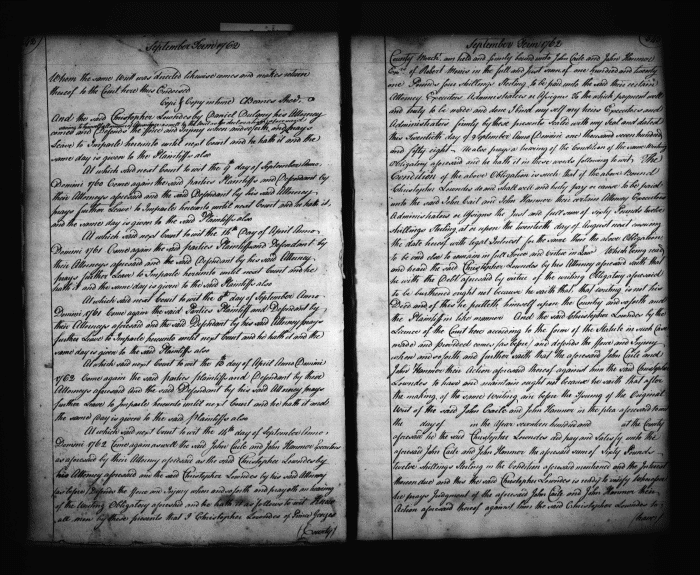 September Term 1762
Whom the same Writ was directed likewise comes and makes return
thereof to the Court here thus Endorsed
Cepi Copy where OBarnes Sher.
And the said Christopher Lowndes by Daniel Dulany his Attorney
comes and Defends the Force and Injury when and soforth and prays
Leave to Imparle hereunto until next Court and he hath it and the
same day is given to the Plaintiffs also
At which said next Court to wit the day of September Anno
Domini 1760 Came again the said parties Plaintiff and Defendant by
their Attorneys aforesaid and the said Defendant by his said Attorney
prays further Leave to Imparle hereunto until next Court and he hath it
and the same day is given to the said Plaintiffs also
At which said next Court to wit the 14th Day of April Anno
Domini 1761 Come again the said parties Plaintiff and Defendant by
their Attorneys aforesaid and the said Defendant by his said Attorney
prays further Leave to Imparle hereunto until next Court and he
hath it and the same day is given to the said Plaintiffs also
At which said next Court to wit the 8th day of September Anno
Domini 1761 Come again the said Parties Plaintiff and Defendant by
their Attorneys aforesaid and the said Defendant by his said Attorney prays
further Leave to Imparle hereunto until next Court and he hath it and the
same day is given to the said Plaintiffs also
At which said next Court to wit the day of April Anno Domini
1762 Come again the said parties Plaintiffs and Defendant by their
Attorneys aforesaid and the said Defendant by his said Attorney prays
further Leave to Imparle hereunto until next Court and he hath it and
the same Day is given to the said Plaintiffs also
At which said next Court to wit the 14th day of September Anno
Domini 1762 Come again as well the said John Caile and John Hanmer Executors
as aforesaid by their Attorney aforesaid as the said Christopher Lowndes by
his Attorney aforesaid and the said Christopher Lowndes by his said Attorney
(as before) Defends the Force and Injury when and soforth and prayeth an hearing
of the Writing Obligatory aforesaid and he hath it as follows to wit Know
all men by these presents that I Christopher Lowndes of Prince Georges
(County)
September Term 1762
County Mercht. am held and firmly bound unto John Caile and John Hanmer
Exrs. of Robert Morris in the full and just sum of one hundred and twenty
one Pounds four shillings Sterling to be paid unto the said their certain
Attorney Executors Administrators or Assigns To the which payment well
and truly to be made and done I bind my self my heirs Executors and
Administrators firmly by these presents Sealed with my Seal and dated
this Twentieth day of September Anno Domini one thousand seven hundred
and fifty eight. He also prays a hearing of the Condition of the same Writing
Obligatory aforesaid and he hath it in these words following to wit, The
Condition of the above Obligation is such that if the above Bound
Christopher Lowndes do and shall well and truly pay or cause to be paid
unto the said John Caile and John Hanmer their certain Attorney Executors
Administrators or Assigns the Just and full sum of Sixty Pounds twelve
shillings Sterling at or upon the twentieth day of August next ensuing
the date hereof with legal Interest for the same then the above Obligation
to be void else to remain in full Force and Virtue in Law Which being read
and heard the said Christopher Lowndes by his Attorney aforesaid saith that
he with the Debt aforesaid by virtue of the writing Obligatory aforesaid
to be burthened ought not because he saith that that writing is not his
Deed and of this he putteth himself upon the Country and soforth and
the Plaintiffs in like manner And the said Christopher Lowndes by the
Licence of the Court here according to the form of the Statute in such Case
made and provided comes (as before) and defends the Force and Injury
when and soforth and further saith that the aforesaid John Caile and
John Hanmer their Action aforesaid thereof against him the said Christopher
Lowndes to have and maintain ought not because he saith that after
the making of the same writing and before the Issuing of the Original
Writ of the said John Caile and John Hanmer in the plea aforesaid to wit
the day of in the Year seventeen hundred and at the County
aforesaid he the said Christopher Lowndes did pay and Satisfy unto the
aforesaid John Caile and John Hanmer the aforesaid sum of Sixty Pounds
twelve shillings Sterling in the Condition aforesaid mentioned and the Interest
thereon due and this he the said Christopher Lowndes is ready to verify Whereupon
he prays Judgment if the aforesaid John Caile and John Hanmer their
Action aforesaid thereof against him the said Christopher Lowndes to
(have)